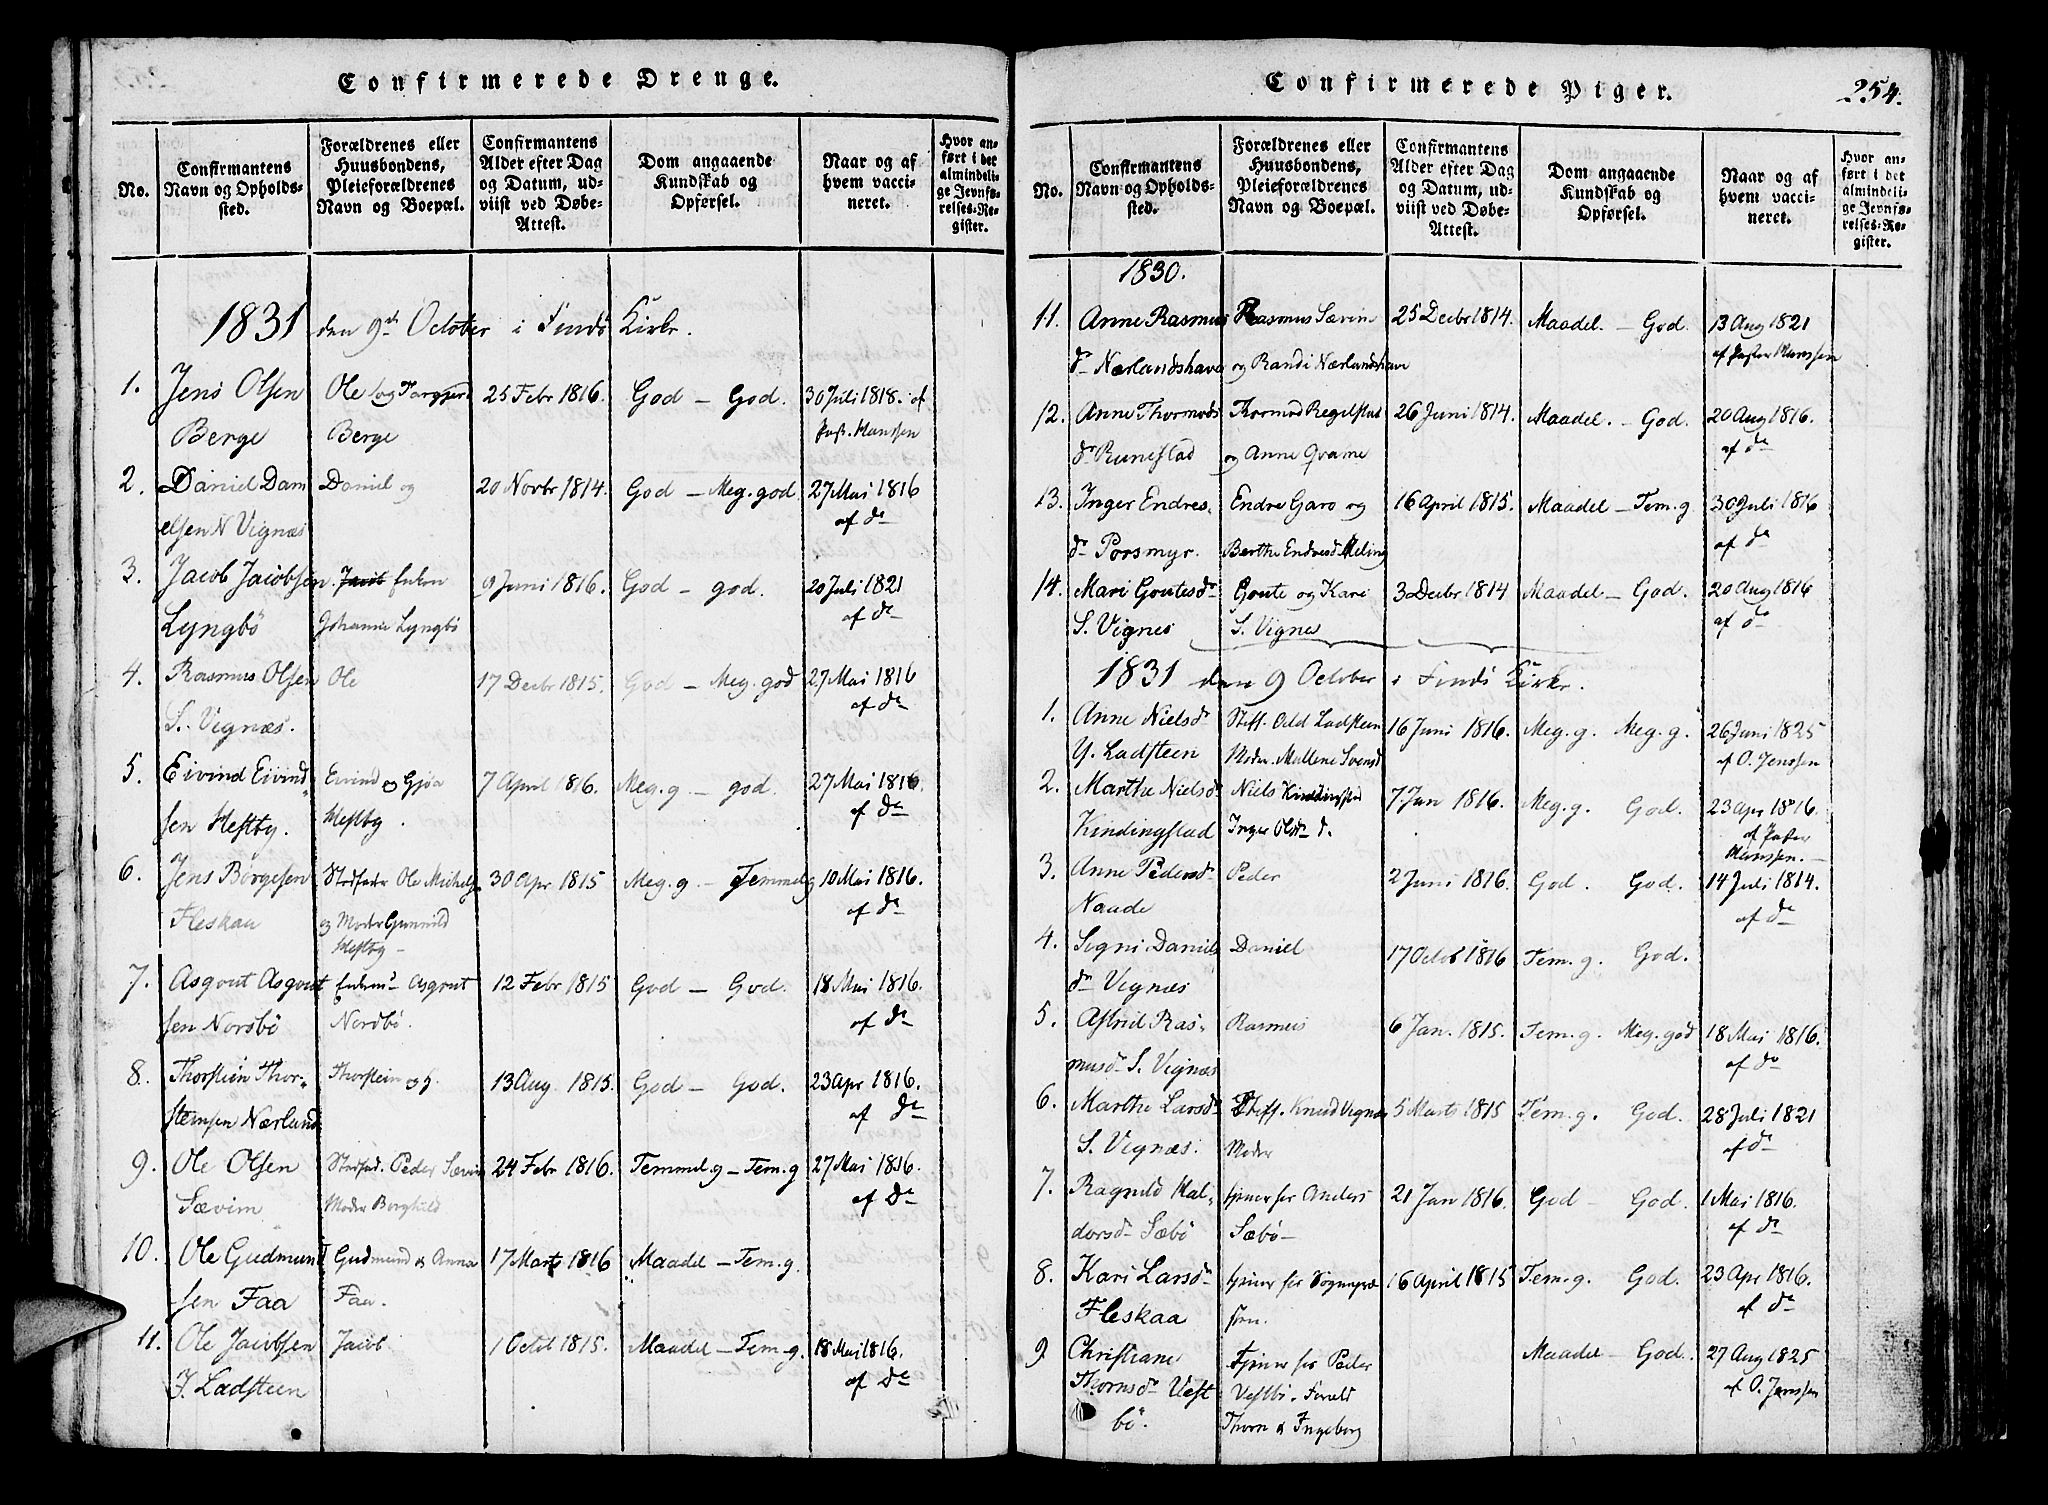 Confirmerede Drenge.
No.
Confirmantens Navn og Opholds-sted.
Forældrenes eller Huusbondens, Pleieforældrenes Navn og Boepæl.
Confirmantens Alder efter Dag og Datum, ud-viist ved Døbe-Attest.
Dom angaaende Kundskab og Opførsel.
Naar og af hvem vacci-neret.
Hvor an-ført i det almindeli-ge Jevnfø-relses-Re-gister.
1831 den 9de October i Findö Kirke.
1. Jens Olsen Ole og 25 Febr 1816. God – God. 30 Juli 1818. af
Berge Berge Past. Hanssen
2. Daniel Dani Daniel og 20 Novbr 1814. God – Meg. god 27 Mai 1816
elsen N Vignæs af do
3. Jacob Jacobsen Enken 9 Juni 1816. God – god. 20 Juli 1821
Lyngbö Johanna Lyngbö af do
4. Rasmus Olsen Ole 17 Decbr 1815. God – Meg. god 27 Mai 1816
S. Vignæs. af do
5. Eivind Eivind Eivind og Gjøa 7 April 1816. Meg. g – god. 27 Mai 1816.
sen Hestby. Hestby. af do
6. Jens Børgesen Stedfader Ole Michels 30 Apr 1815 Meg. g – Temmelg 10 Mai 1816.
Fleskaa og Moder Gunnild af do
Hestby –
7. Asgout Asgout Asgout 12 Febr 1815 God – God. 18 Mai 1816.
sen Norsbö Nordbö. af do
8. Thorstein Thor- Thorstein og 13 Aug 1815. God – God. 23 Apr 1816.
steinsen Nærland af do
9. Ole Olsen Stedfad. Peder Sævim 24 Febr 1816. Temmel. g – Tem. g 27 Mai 1816.
Sævim Moder Borghild af do
10. Ole Gudmund Gudmund & Anna 17 Marts 1816 Maadel – Tem. g.
sen Faa Faa.
11. Ole Jacobsen Jacob 1 Octb 1815. Maadel – Tem. g. 18 Mai 1816.
Y. Ladsteen af do
Confirmerede Piger.
254.
No.
Confirmantens Navn og Opholds-sted.
Forældrenes eller Huusbondens, Pleieforældrenes Navn og Boepæl.
Confirmantens Alder efter Dag og Datum, ud-viist ved Døbe-Attest.
Dom angaaende Kundskab og Opførsel.
Naar og af hvem vacci-neret.
Hvor an-ført i det almindeli-ge Jevnfø-relses-Re-gister.
1830.
11. Anne Rasmus Rasmus Sævim 25 Decbr 1814. Maadel. – God. 13 Aug 1821
dr Nærlandshave og Randi Nærlandshave af Pastor Hanssen
12. Anne Thormods Thormod Regelstad 26 Juni 1814. Maadel. – God. 20 Aug 1816.
dr Runestad og Anne Qvame af do
13. Inger Endres- Endre Garo og 16 April 1815. Maadel – Tem. g 30 Juli 1816
dr Porsmyr. Berthe Endresd Meling af do
14. Mari Goutesdr Goute og Kari 3 Decbr 1814 Maadel – God. 20 Aug 1816
S. Vignes S. Vignes af do
1831 den 9 October i Findö Kirke.
1. Anne Nielsdr Stiff. Odd Ladsteen 16 Juni 1816. Meg. g. Meg. g. 26 Juni 1825
Y. Ladsteen Moder Mallene Svensd af O. Jenssen
2. Marthe Nielsdr Niels Kindingstad 7 Jan 1816. Meg. g. God. 23 Apr 1816.
Kindingstad Inger Olsdr af Pastor
Hanssen. –
3. Anne Pedersdr Peder 2 Juni 1816. God. God. 14 Juli 1814.
Naade af do
4. Signi Daniels Daniel 17 Octob 1816 Tem. g. God.
dr Vignæs
5. Astrid Ras- Rasmus 6 Jan. 1815. Tem. g. Meg. god 18 Mai 1816.
musdr S. Vignæs af do
6. Marthe Larsdr Stiff. Knud Vignæs 5 Marts 1815 Tem. g. God. 28 Juli 1821
S. Vignæs. Moder af do
7. Ragnild Hal- tjener for Anders 21 Jan 1816. God God. 1 Mai 1816.
dorsdr Sæbö Sæbö – af do
8. Kari Larsdr tjener for Sognepræ 16 April 1815 Tem. g. God. 23 Apr 1816.
Fleskaa sten. af do
9 Christiane Tjener for Peder Maadel – God. 27 Aug 1825
Thornsdr Vest Vestbö. Foræld af O. Jenssen
bö. Thorn & Ingeborg